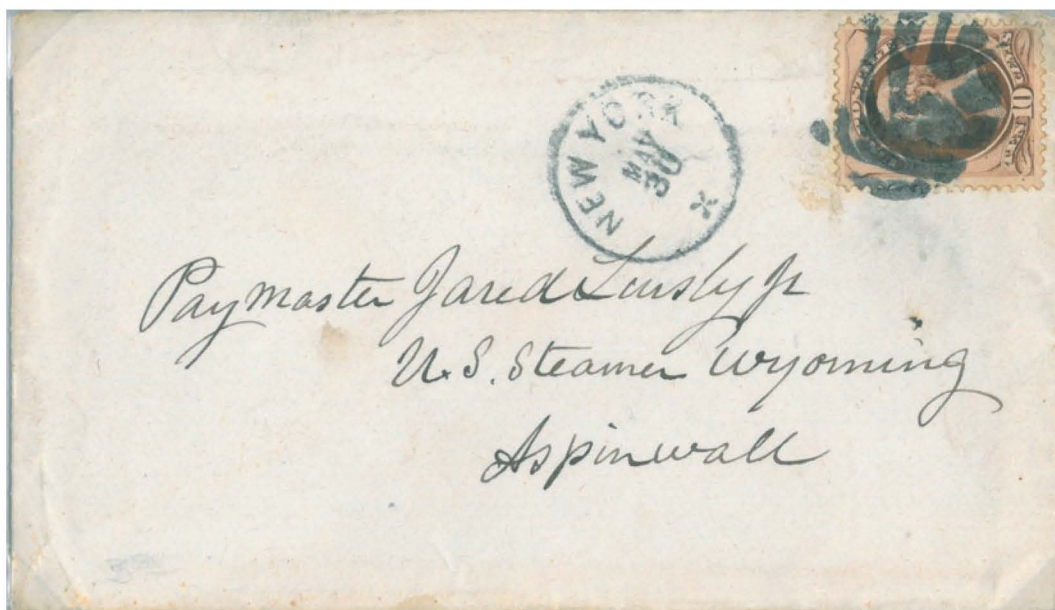 NEW YORK
MAY
30
10
Paymaster Jared Linsly Jr
U.S. Steamer Wyoming
Aspinwall